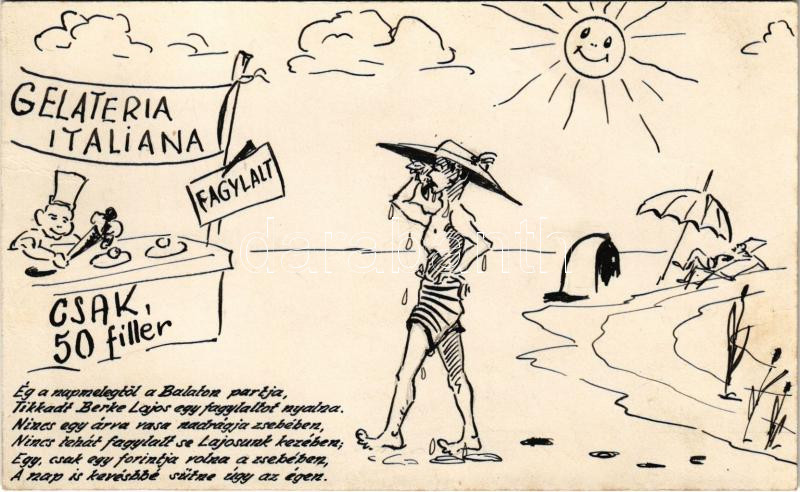 GELATERIA
ITALIANA
FAGYLALT
CSAK,
50 fillér
Ég a napmelegtöl a Balaton partja,
Tikkadt Berke Lajos egy fagylaltot nyalna.
Nincs egy árva vasa nadrágja zsebében,
Nincs tehát fagylalt se Lajosunk kezében;
Egy, csak egy forintja volna a zsebében,
A nap is kevésbbé sütne úgy az égen.
darabanth